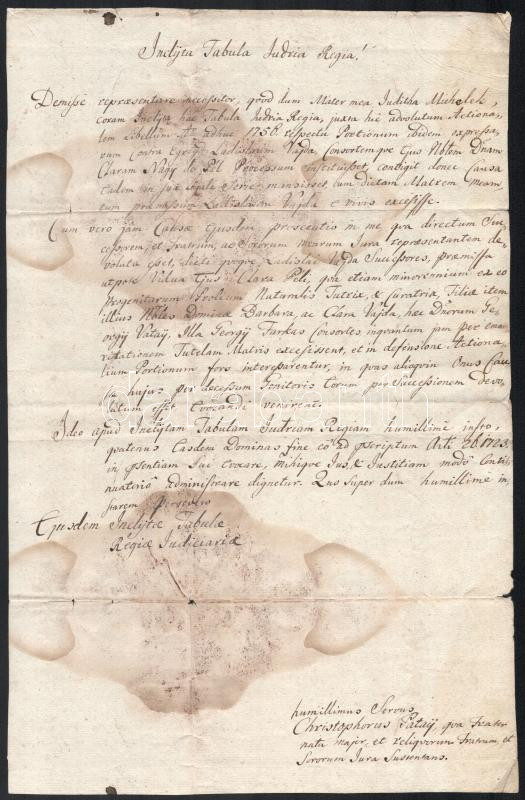 Inclyta Tabula Judria Regia!
Demisse repræsentare necessitor, quod dum Mater mea Juditha Michelek,
coram Inclyta hac Tabula Judria Regia, juxta hic advolutum Actiona-
lem Libellum Anno adhuc 1756. respectu Portionum ibidem expressa-
rum contra Egregium Ladislaum Vajda, Consortemque Ejus Nblem Dnam
Claram Nagy de Pel Processum instituisset, contigit donec Causa
eadem in sua Serie mansisset, tam dictam Matrem meam
tum præmissum Ladislaum Vajda e vivis excessisse.
Cum vero jam Causæ Ejusdem prosecutio in me, qua directum Suc-
cessorem, et Fratrum, ac Sororum mearum Jura repræsentantem de-
voluta esset, dicti quoque Ladislai Vajda Successores, præmissa
utpote Vidua Ejus Clara Peli, qua etiam minorennium ex eo
progenitarum Prolium Naturalis Tutrix, & Curatrix, Filiæ item
illius Nobles Dominæ Barbara, ac Clara Vajda, hæc Dnorum Ge-
orgij Vataÿ, Illa Georgij Farkas Consortes inquantum jam per ema-
ritationem Tutelam Matris excessissent, et in defensione Actiona-
lium Portionum fors interessarentur, in quas alioquin Onus Cau-
sæ hujus per decessum Genitoris Eorum per Successionem devo-
lutum esset Evocandi venirent:
Ideo apud Inclytam Tabulam Judriam Regiam humillime insto,
quatenus Easdem Dominas fine eo ad præscriptum Arti 26. 1723.
in præsentiam Sui Evocare, mihique Jus, & Justitiam modo Conti-
nuatorio administrare dignetur. Quo super dum humillime in-
starem Persevero
Ejusdem Inclytæ Tabulæ
Regiæ Judiciariæ
humillimus Servus
Christophorus Pataÿ, qua Frater
natu major, et reliquorum Fratrum, et
Sororum Jura Sustentans.